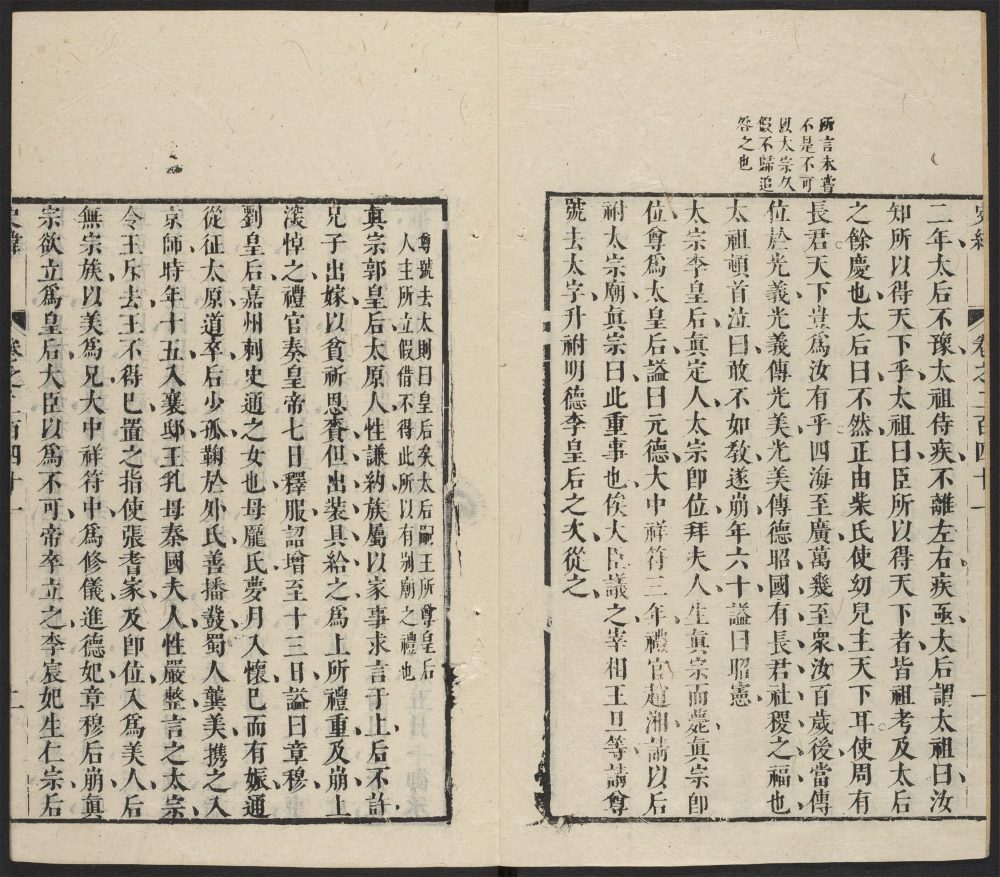 所言未嘗
不是不可
因太宗久
假不歸追
咎之也
史緯
卷之二百四十一
二年太后不豫太祖侍疾不離左右疾亟太后謂太祖曰汝
知所以得天下乎太祖曰臣所以得天下者皆祖考及太后
之餘慶也太后曰不然正由柴氏使幼兒主天下耳使周有
長君天下豈爲汝有乎四海至廣萬幾至衆汝百歲後當傳
位於光義光義傳光美光美傳德昭國有長君社稷之福也
太祖頓首泣曰敢不如敎遂崩年六十謚曰昭憲
太宗李皇后眞定人太宗卽位拜夫人生眞宗而薨眞宗卽
位尊爲太皇后謚曰元德大中祥符三年禮官趙湘請以后
祔太宗廟眞宗曰此重事也俟大臣議之宰相王旦等請尊
號去太字升祔明德李皇后之次從之
尊號去太則曰皇后矣太后嗣王所尊皇后
人主所立假借不得此所以有别廟之禮也
眞宗郭皇后太原人性謙納族屬以家事求言于上后不許
兄子出嫁以貧祈恩賚但出裝具給之爲上所禮重及崩上
深悼之禮官奏皇帝七日釋服詔增至十三日謚曰章穆
劉皇后嘉州刺史通之女也母龐氏夢月入懷巳而有娠通
從征太原道卒后少孤鞠於外氏善播鼗蜀人龔美攜之入
京師時年十五入襄邸王乳母秦國夫人性嚴整言之太宗
令王斥去王不得巳置之指使張耆家及卽位入爲美人后
無宗族以美爲兄大中祥符中爲修儀進德妃章穆后崩眞
宗欲立爲皇后大臣以爲不可帝卒立之李宸妃生仁宗后
史緯
卷之二百四十一
二